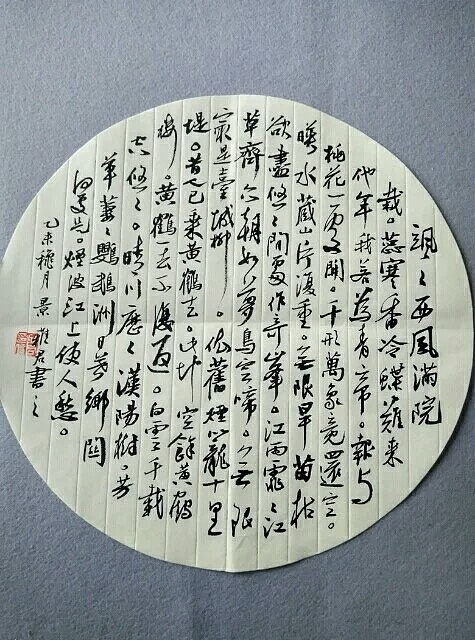 颯々西風滿院
栽。蕊寒香冷蝶難来
他年我若為青帝。報与
桃花一處開。千形萬象竟還空。
映水藏山片復重。無限旱苗枯
欲盡悠々閑處作奇峯。江雨霏々江
草齊六朝如夢鳥空啼。無限
最是臺城柳。依舊煙籠十里
堤。昔人已乘黃鶴去。此地空餘黃鶴
樓。黃鶴一去不復返。白雲千載
空悠々。晴川歷々漢陽樹。芳
草萋々鸚鵡洲日暮鄉關
何處是。煙波江上使人愁。
乙未穐月景書之